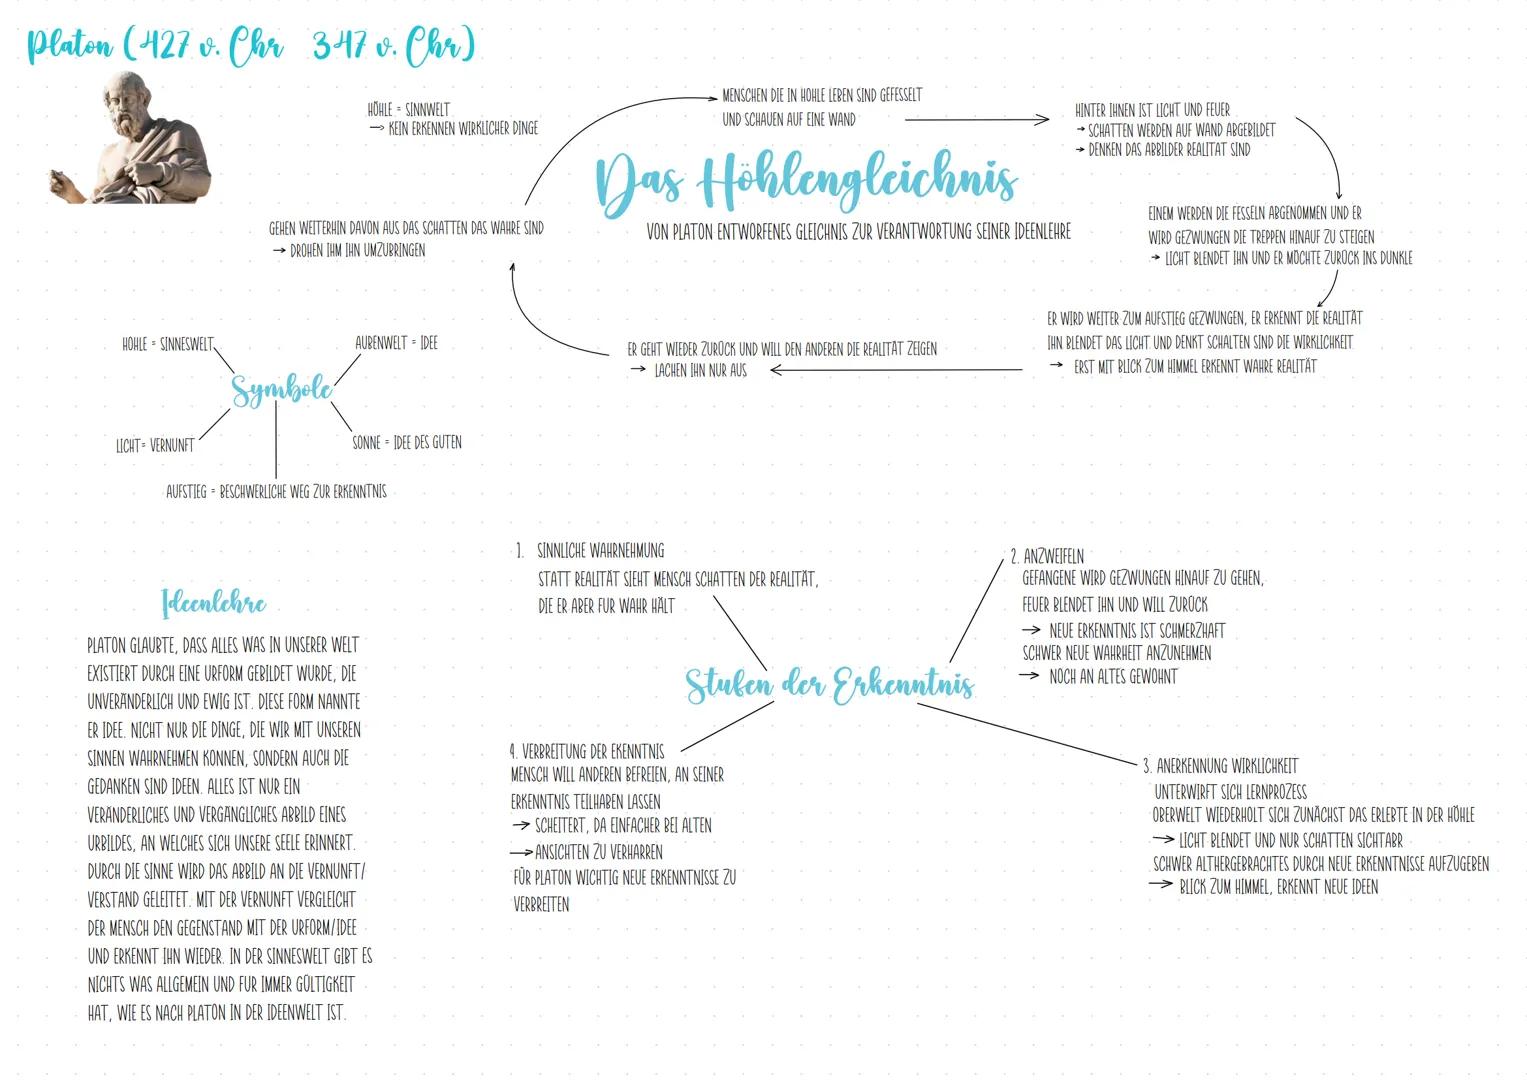 Platon (427 v. Chr 347 v. Chr)
HÖHLE = SINNWELT
→ KEIN ERKENNEN WIRKLICHER DINGE
MENSCHEN DIE IN HÖHLE LEBEN SIND GEFESSELT
UND SCHAUEN AUF EINE WAND
HINTER IHNEN IST LICHT UND FEUER
→ SCHATTEN WERDEN AUF WAND ABGEBILDET
→ DENKEN DAS ABBILDER REALITÄT SIND
Das Höhlengleichnis
VON PLATON ENTWORFENES GLEICHNIS ZUR VERANTWORTUNG SEINER IDEENLEHRE
EINEM WERDEN DIE FESSELN ABGENOMMEN UND ER
WIRD GEZWUNGEN DIE TREPPEN HINAUF ZU STEIGEN
→ LICHT BLENDET IHN UND ER MÖCHTE ZURÜCK INS DUNKLE
ER WIRD WEITER ZUM AUFSTIEG GEZWUNGEN, ER ERKENNT DIE REALITÄT
IHN BLENDET DAS LICHT UND DENKT SCHALTEN SIND DIE WIRKLICHKEIT
→ ERST MIT BLICK ZUM HIMMEL ERKENNT WAHRE REALITÄT
ER GEHT WIEDER ZURÜCK UND WILL DEN ANDEREN DIE REALITÄT ZEIGEN
→ LACHEN IHN NUR AUS
GEHEN WEITERHIN DAVON AUS DAS SCHATTEN DAS WAHRE SIND
→ DROHEN IHM IHN UMZUBRINGEN
HÖHLE = SINNESWELT
AUßENWELT = IDEE
Symbole
LICHT= VERNUNFT
SONNE = IDEE DES GUTEN
AUFSTIEG = BESCHWERLICHE WEG ZUR ERKENNTNIS
Ideenlehre
PLATON GLAUBTE, DASS ALLES WAS IN UNSERER WELT
EXISTIERT DURCH EINE URFORM GEBILDET WURDE, DIE
UNVERÄNDERLICH UND EWIG IST. DIESE FORM NANNTE
ER IDEE. NICHT NUR DIE DINGE, DIE WIR MIT UNSEREN
SINNEN WAHRNEHMEN KÖNNEN, SONDERN AUCH DIE
GEDANKEN SIND IDEEN. ALLES IST NUR EIN
VERÄNDERLICHES UND VERGÄNGLICHES ABBILD EINES
URBILDES, AN WELCHES SICH UNSERE SEELE ERINNERT.
DURCH DIE SINNE WIRD DAS ABBILD AN DIE VERNUNFT/
VERSTAND GELEITET. MIT DER VERNUNFT VERGLEICHT
DER MENSCH DEN GEGENSTAND MIT DER URFORM/IDEE
UND ERKENNT IHN WIEDER. IN DER SINNESWELT GIBT ES
NICHTS WAS ALLGEMEIN UND FÜR IMMER GÜLTIGKEIT
HAT, WIE ES NACH PLATON IN DER IDEENWELT IST.
1. SINNLICHE WAHRNEHMUNG
STATT REALITÄT SIEHT MENSCH SCHATTEN DER REALITÄT,
DIE ER ABER FÜR WAHR HÄLT
2. ANZWEIFELN
GEFANGENE WIRD GEZWUNGEN HINAUF ZU GEHEN,
FEUER BLENDET IHN UND WILL ZURÜCK
→ NEUE ERKENNTNIS IST SCHMERZHAFT
SCHWER NEUE WAHRHEIT ANZUNEHMEN
→ NOCH AN ALTES GEWOHNT
Stufen der Erkenntnis
4. VERBREITUNG DER EKENNTNIS
MENSCH WILL ANDEREN BEFREIEN, AN SEINER
ERKENNTNIS TEILHABEN LASSEN
→ SCHEITERT, DA EINFACHER BEI ALTEN
→ ANSICHTEN ZU VERHARREN
FÜR PLATON WICHTIG NEUE ERKENNTNISSE ZU
VERBREITEN
3. ANERKENNUNG WIRKLICHKEIT
UNTERWIRFT SICH LERNPROZESS
OBERWELT WIEDERHOLT SICH ZUNÄCHST DAS ERLEBTE IN DER HÖHLE
→ LICHT BLENDET UND NUR SCHATTEN SICHTABR
SCHWER ALTHERGEBRACHTES DURCH NEUE ERKENNTNISSE AUFZUGEBEN
→ BLICK ZUM HIMMEL, ERKENNT NEUE IDEEN